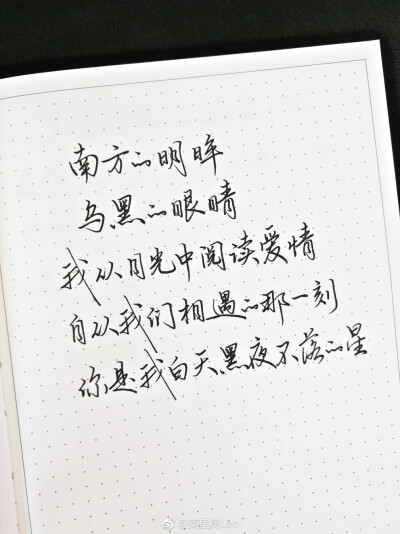 南方的明眸
乌黑的眼睛
我从目光中阅读爱情
自从我们相遇的那一刻
你是我白天黑夜不落的星